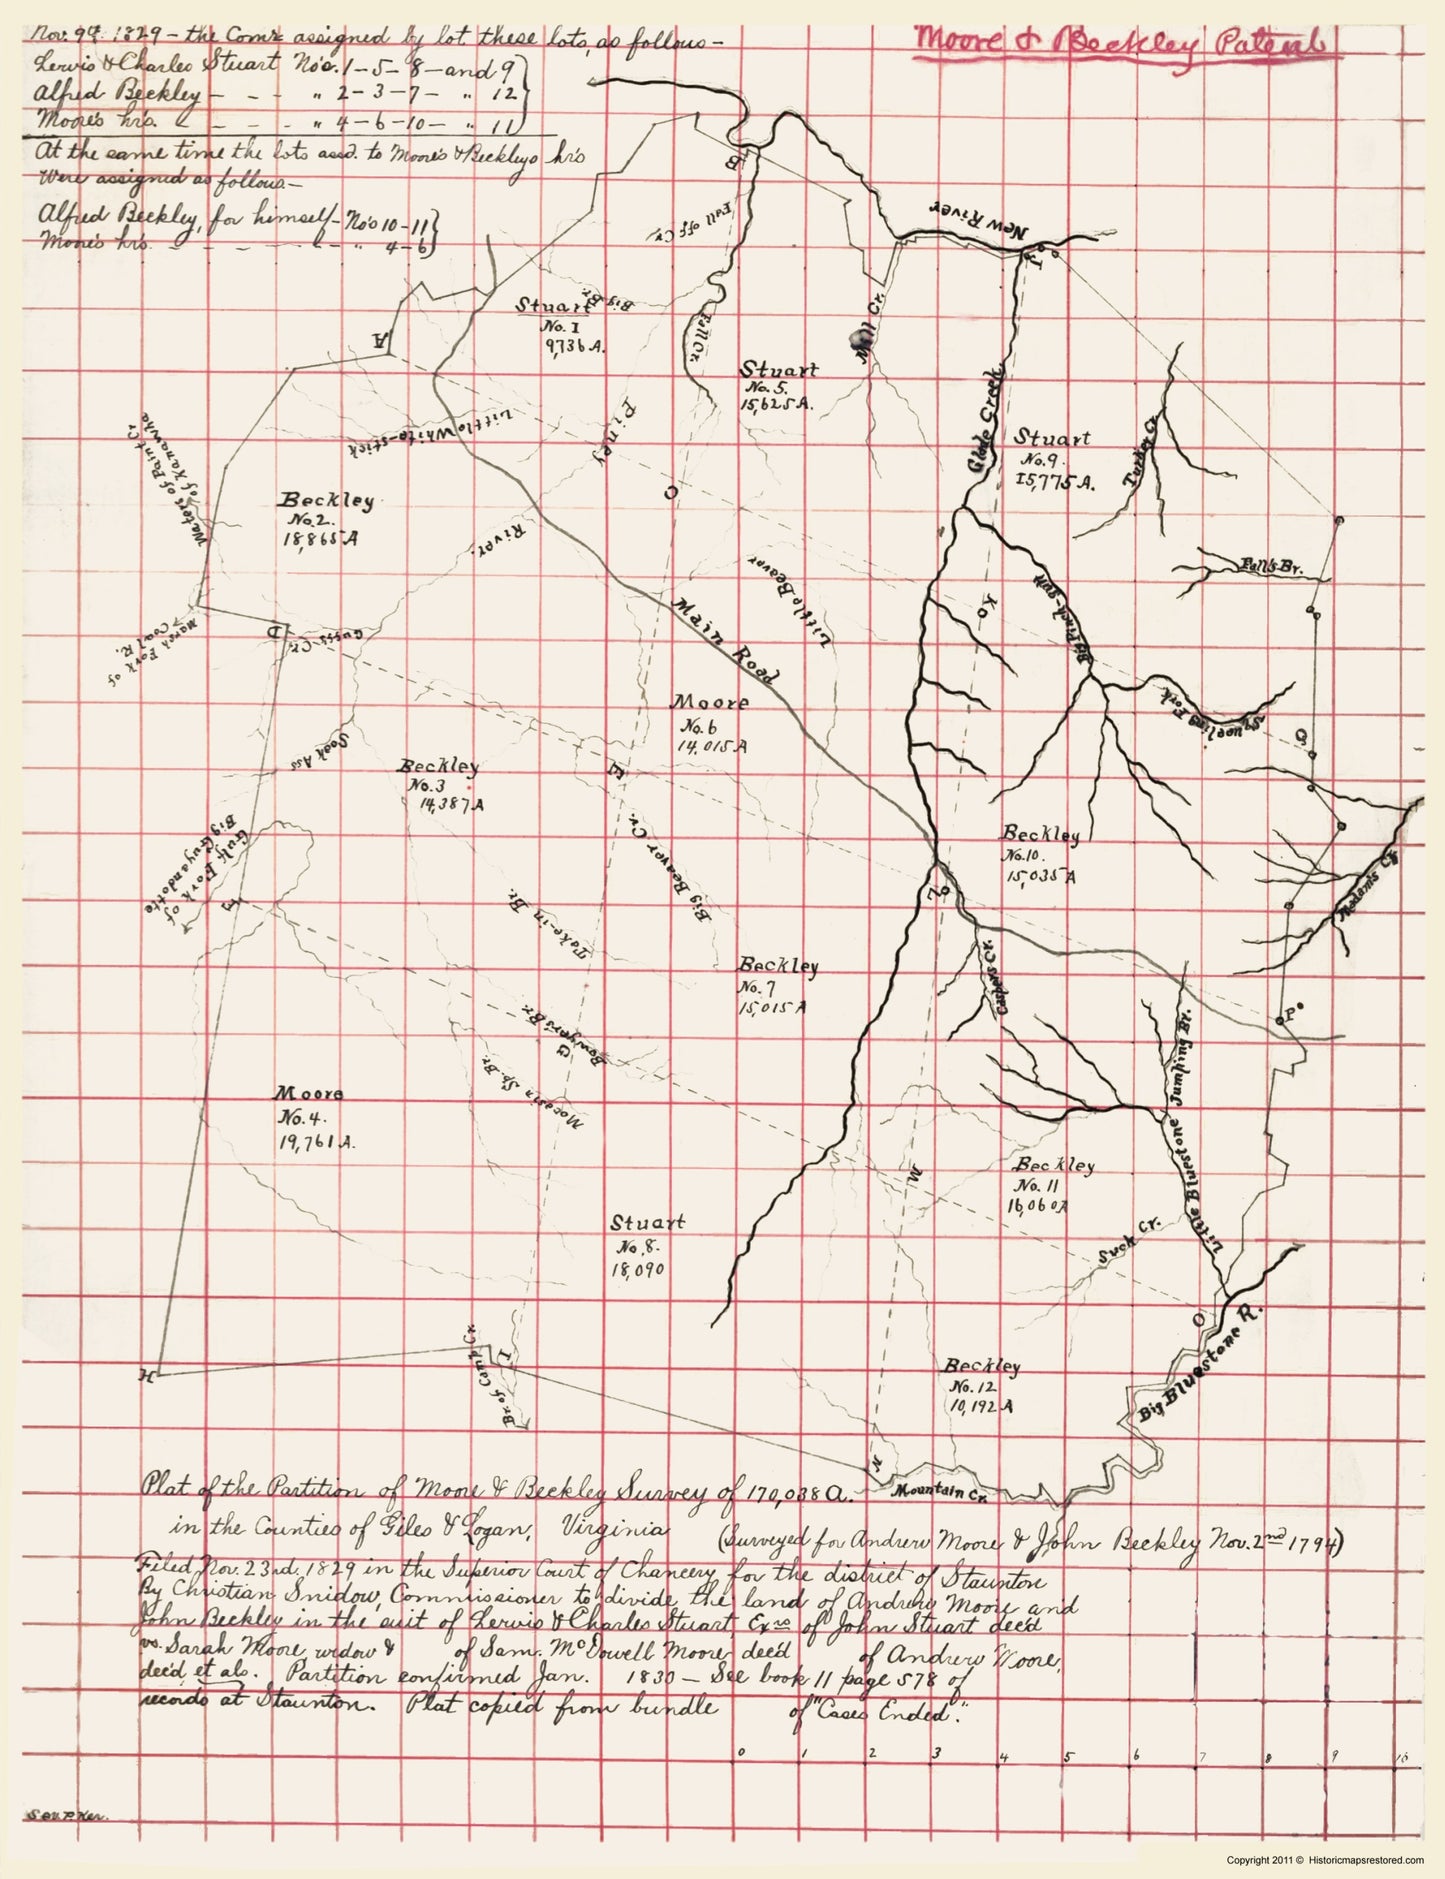 Moore & Beckley Patent
Nov. 9th 1829 – the Comrs assigned by lot these lots, as follows –
Lewis & Charles Stuart No's. 1–5–8–and 9
Alfred Beckley – – – " 2–3–7– " 12
Moore's hrs. – – – – " 4–6–10– " 11
At the same time the lots assd. to Moore's & Beckleys hrs
Were assigned as follows –
Alfred Beckley, for himself – No's 10–11
Moore's hrs. – – – – – " 4–6
B
Fall off Cr.
New River
J
A
Big Br.
Stuart
No. 1
9,736 A.
Fall Cr.
Mill Cr.
Stuart
No. 5.
15,625 A.
Glade Creek
Stuart
No. 9.
15,775 A.
Turkey Cr.
Little White-stick
Piney
River.
C
Waters of Paint Cr
of Kanawha
Beckley
No. 2.
18,865 A
Fall's Br.
Little Beaver
Big Pinch-gut
K
Main Road
Marsh Fork of
Coal R.
D
Guffs Cr.
Squealing Fork
Moore
No. 6
14,015 A
Soak Ass
Beckley
No. 3
14,387 A
E
Big Beaver Cr.
Beckley
No. 10.
15,035 A
Adam's Cr.
Gulf Fork of
Big Guyandotte
F
L
Take-in Br.
Beckley
No. 7
15,015 A
Casper's Cr.
P
Bowyers Br.
G
Mocasin Sp. Br.
Moore
No. 4.
19,761 A.
Jumping Br.
Little Bluestone
Beckley
No. 11
16,060 A
M
Suck Cr.
Stuart
No. 8.
18,090
O
Big Bluestone R.
H
I
Br. of Camp Cr.
Beckley
No. 12
10,192 A
N
Mountain Cr.
Plat of the Partition of Moore & Beckley Survey of 170,038 A.
in the Counties of Giles & Logan, Virginia (Surveyed for Andrew Moore & John Beckley Nov. 2nd 1794)
Filed Nov. 23rd, 1829 in the Superior Court of Chancery for the district of Staunton
By Christian Snidow, Commissioner to divide the land of Andrew Moore and
John Beckley in the suit of Lewis & Charles Stuart, Exrs of John Stuart dec'd
vs. Sarah Moore, widow & of Sam. McDowell Moore dec'd of Andrew Moore,
dec'd, et als. Partition confirmed Jan. 1830 – See book 11 page 578 of
records at Staunton. Plat copied from bundle of "Cases Ended".
0 1 2 3 4 5 6 7 8 9 10
Copyright 2011 © Historicmapsrestored.com